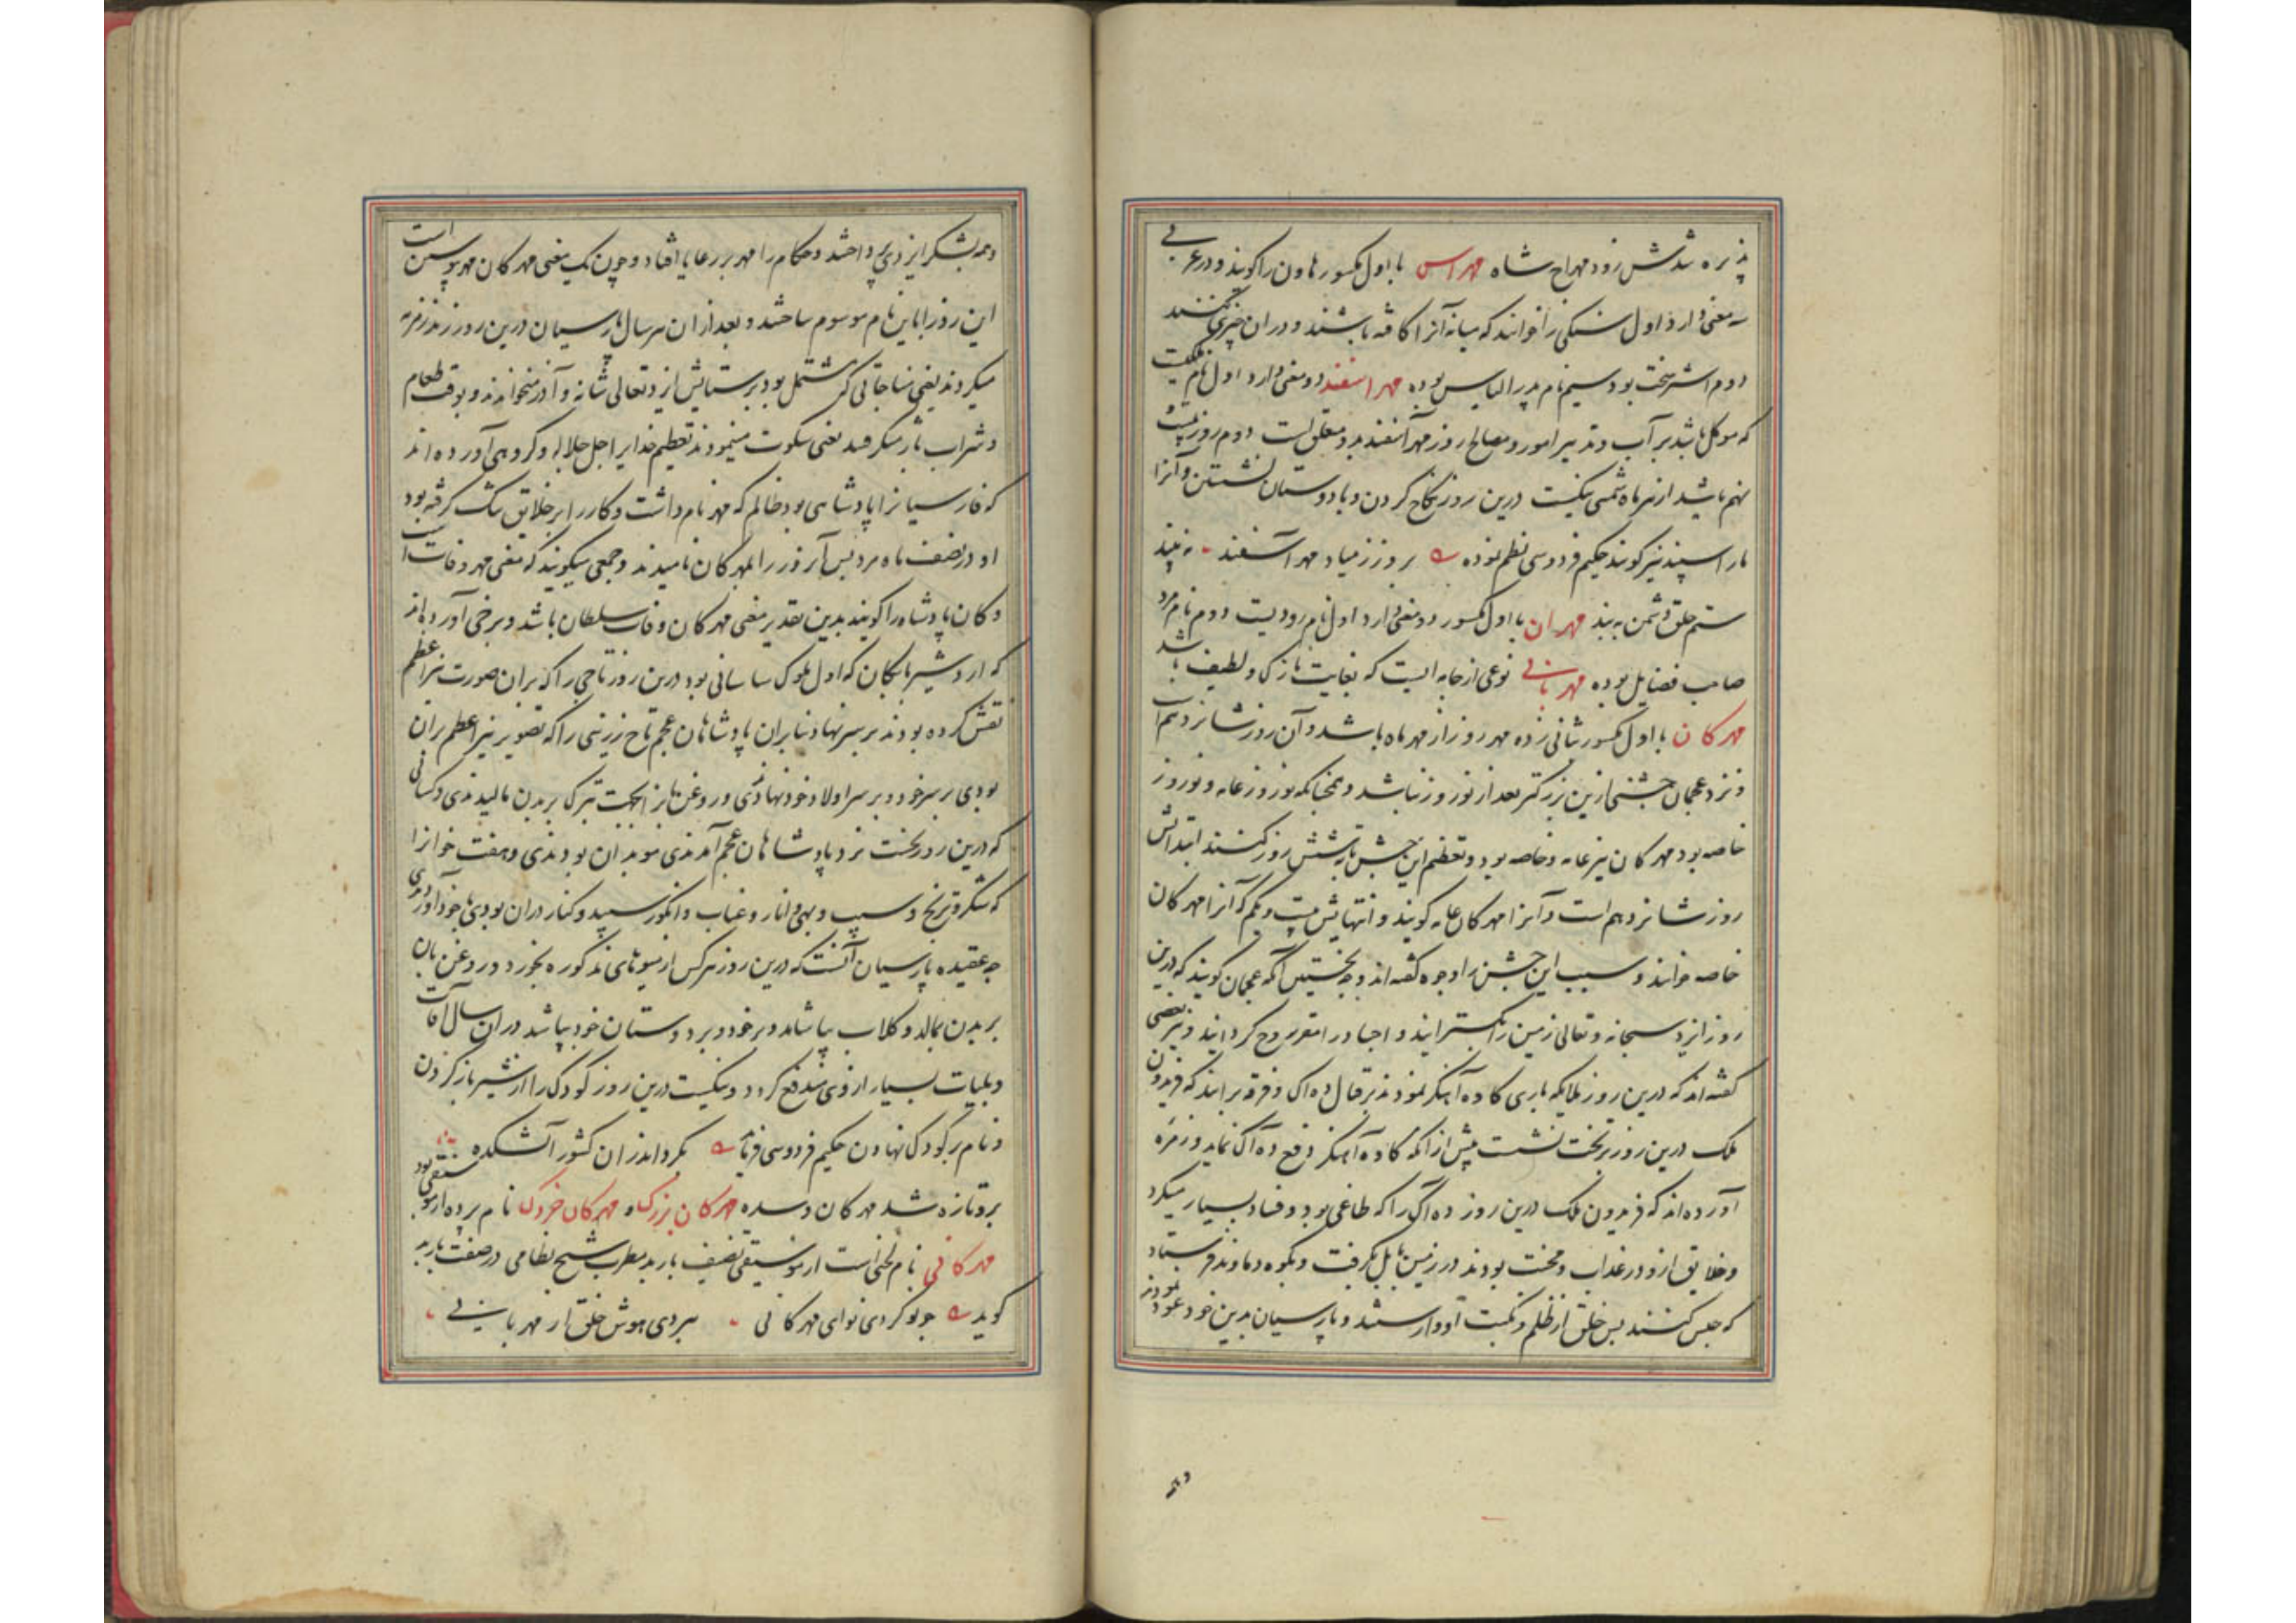 پذیره شدش زود مهراج شاه مهراس با اول مکسور هاون را گویند و در عربی
سه معنی دارد اول سنگی را خوانند که میانه آنرا کافته باشند و در ان چیزی کنند
دوم اشتر سخت بود سیم نام پدر الیاس بوده مهر اسفند دو معنی دارد اول نام ملکیست
که موکل باشد بر آب و تدبیر امور و مصالح روز مهر آسفند بدو متعلق است دوم روز بیست و
نهم باشد از هر ماه شمسی نیکست درین روز نکاح کردن و با دوستان نشستن و آنرا
مار اسپند نیز گویند حکیم فردوسی نظم نموده بروز زمیاد مهر آسفند به بیند
ستم خلق دشمن به بند مهران با اول مکسور دو معنی دارد اول نام رودیست دوم نام مرد
صاحب فضایل بوده مهربانی نوعی از جامه ایست که بغایت نازک و لطیف باشد
مهرکان با اول مکسور بثانی زده مهر روز از مهر ماه باشد و آن روز شانزدهم است
و نزد عجمان جشنی ازین بزرکتر بعد از نوروز نباشد و همچنانکه نوروز عامه و نوروز
خاصه بود مهرکان نیز عامه و خاصه بود و تعظیم این جشن تا شش روز کنند ابتدایش
روز شانزدهم است و آنرا مهرکان عامه کویند و انتهایش بیست و یکم که آنرا مهرکان
خاصه خوانند و سبب این جشن را وجوه کفته اند وجه نخستین آنکه عجمان کویند که درین
روز ایزد سبحانه و تعالی زمین را بکسترانید و اجساد را مقر روح کردانید و نیز بعضی
کفته اند که درین روز ملایکه یاری کاوه آهنکر نمودند بر قتال ده آک و فرقه برانند که فریدون
ملک درین روز بر تخت نشست پیش از آنکه کاوه آهنکر دفع ده آک نماید و زمره
آورده اند که فریدون ملک درین روز ده آک را که طاغی بود و فساد بسیار میکرد
و خلایق ازو در عذاب و محنت بودند در زمین بابل بکرفت و بکوه دماوند فرستاد
که حبس کنند پس خلق از ظلم و نکبت او وارستند و پارسیان بدین خود عود نمودند
و همه
و همه بشکر ایزدی پرداختند و حکام را مهر بر رعایا افتاد و چون یک معنی مهرکان مهر پیوستن است
این روز را باین نام موسوم ساختند و بعد از ان هر سال پارسیان درین روز زمزمه
میکردند یعنی مناجاتی که مشتمل بود بر ستایش ایزد تعالی شانه و آذر میخواندند و بوقت طعام
و شراب باژ میکرفتند یعنی سکوت مینمودند تعظیم خدایرا جل جلاله و کروهی آورده اند
که فارسیانرا پادشاهی بود ظالم که مهر نام داشت و کار را بر خلایق تنک کرفته بود
او در نصف ماه مرد پس آنروز را مهرکان نامیدند و جمعی میکویند که معنی مهر وفات است
و کان پادشاه را کویند بدین تقدیر معنی مهرکان وفات سلطان باشد و برخی آورده اند
که اردشیر بابکان که اول ملوک ساسانی بود درین روز تاجی را که بران صورت نیر اعظم
نقش کرده بودند بر سر نهاد بنابران پادشاهان عجم تاج زرینی را که تصویر نیر اعظم بران
بودی بر سر خود و بر سر اولاد خود نهادندی و روغن بان از بهجت تبرک بر بدن مالیدندی و کسانی
که درین روز نخست نزد پادشاهان عجم آمدندی موبدان بودندی و هفت خوانرا
که شکر و ترنج و سیب و بهی و انار و عناب و انکور سپید و کنار دران بودی با خود آوردندی
چه عقیده پارسیان آنست که درین روز هر کس از میوهای مذکوره بخورد و روغن بان
بر بدن بمالد و کلاب بپاشد و بر خود و بر دوستان خود بپاشد در ان سال آفات
و بلیات بسیار از وی مندفع کردد و نیکست درین روز کودک را از شیر باز کردن
و نام بر کودک نهادن حکیم فردوسی فرماید بکرد اندران کشور آتشکده
برو تازه شد مهرکان و سده مهرکان بزرک و مهرکان خردک نام پرده از موسیقی بود
مهرکانی نام لحنی است از موسیقی تصنیف باربد مطرب شیخ نظامی در صفت باربد
کوید چو نو کردی نوای مهرکانی ببردی هوش خلق از مهربانی